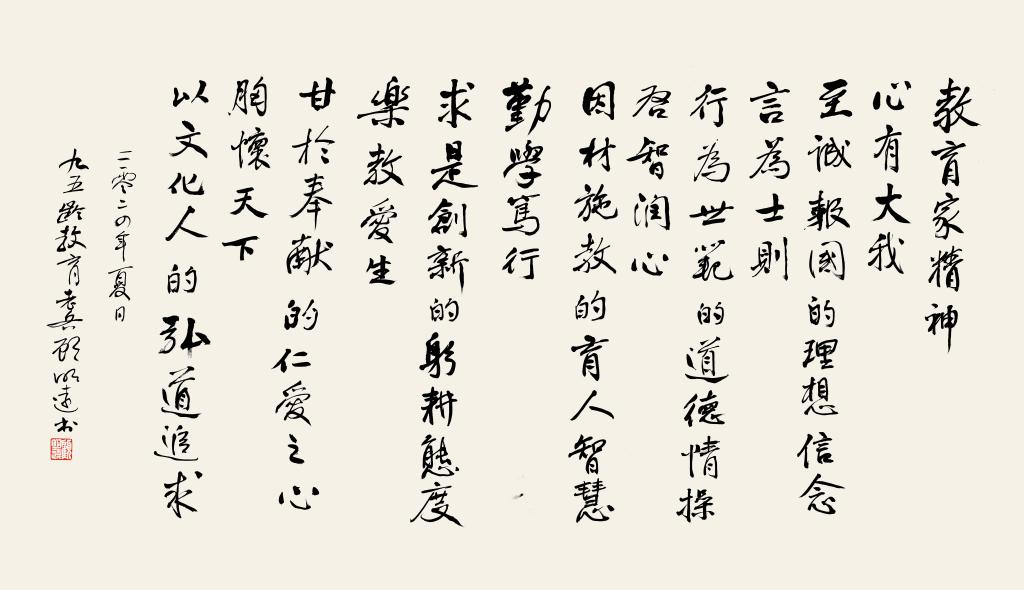 教育家精神
心有大我
至誠報國的理想信念
言為士則
行為世範的道德情操
启智润心
因材施教的育人智慧
勤學篤行
求是創新的躬耕態度
樂教愛生
甘於奉献的仁愛之心
胸懷天下
以文化人的弘道追求
二零二四年夏日
九五龄教育耋兵顾明遠书